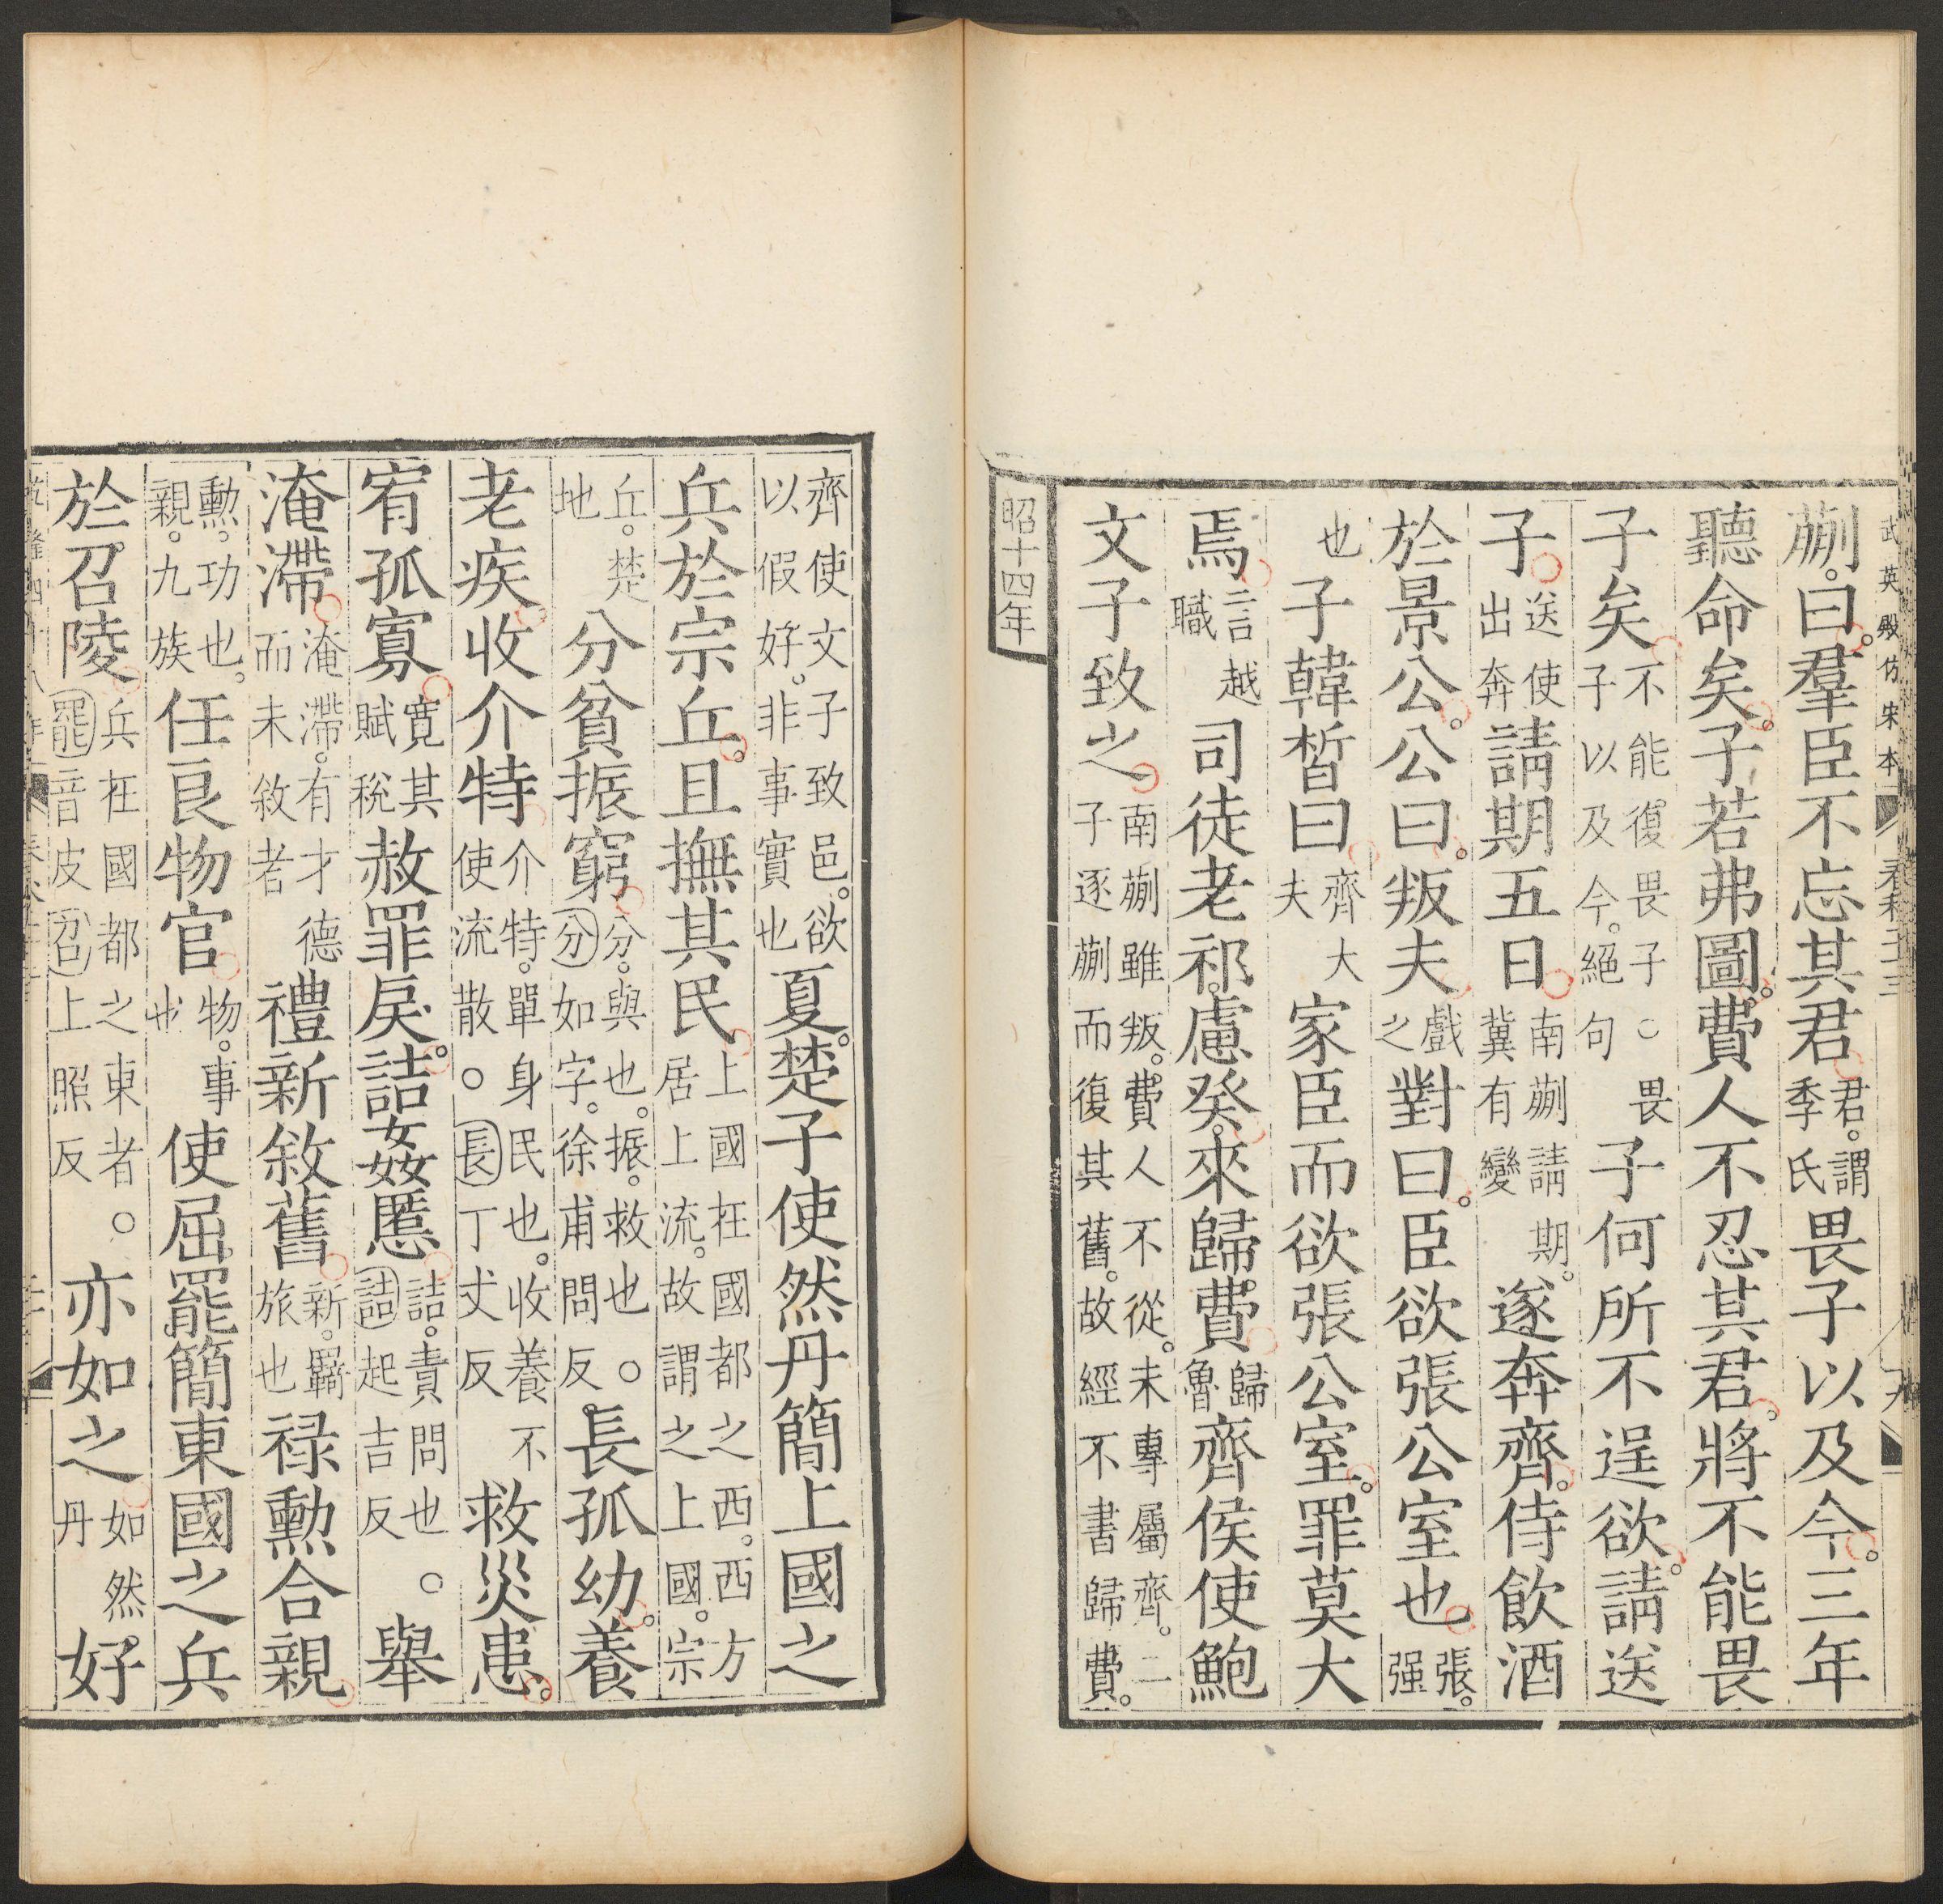 武英殿仿宋本
蒯。曰。羣臣不忘其君君。謂季氏畏子以及今。三年
聽命矣。子若弗圖。費人不忍其君。將不能畏
子矣不能復畏子○畏子以及今。絕句子何所不逞欲。請送
子送使出奔請期五日南蒯請期。冀有變遂奔齊。侍飲酒
於景公。公曰。叛夫戲之對曰。臣欲張公室也張。强
也子韓皙曰齊大夫家臣而欲張公室。罪莫大
焉言越職司徒老祁。慮癸。來歸費歸魯齊侯使鮑
文子致之南蒯雖叛。費人不從。未專屬齊。二子逐蒯而復其舊。故經不書歸費。
昭十四年
齊使文子致邑。欲以假好。非事實也夏。楚子使然丹簡上國之
兵於宗丘。且撫其民上國在國都之西。西方居上流。故謂之上國。宗
丘。楚地分貧振窮分。與也。振。救也○分如字。徐甫問反長孤幼。養
老疾。收介特介特。單身民也。收養不使流散○長丁丈反救災患。
宥孤寡寬其賦稅赦罪戾。詰姦慝詰。責問也○詰起吉反舉
淹滯淹滯。有才德而未敘者禮新敘舊新。羇旅也禄勳合親
勳。功也。親。九族任良物官物。事也使屈罷簡東國之兵
於召陵兵在國都之東者○罷音皮召上照反亦如之如然丹好